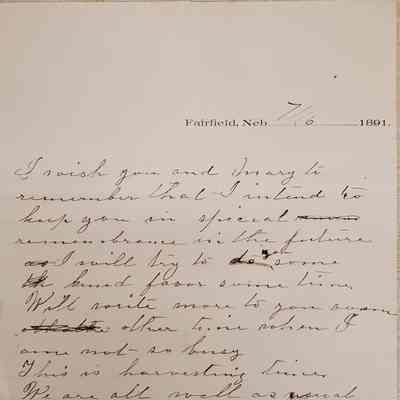 Fairfield, Neb. 7/6 1891.
I wish you and Mary to
remember that I intend to
keep you in special
rememberance in the future
as I will try to do you some
kind favor some time
Will write more to you soon
other time when I
am not so busy
This is harvesting time.
We are all well as usual